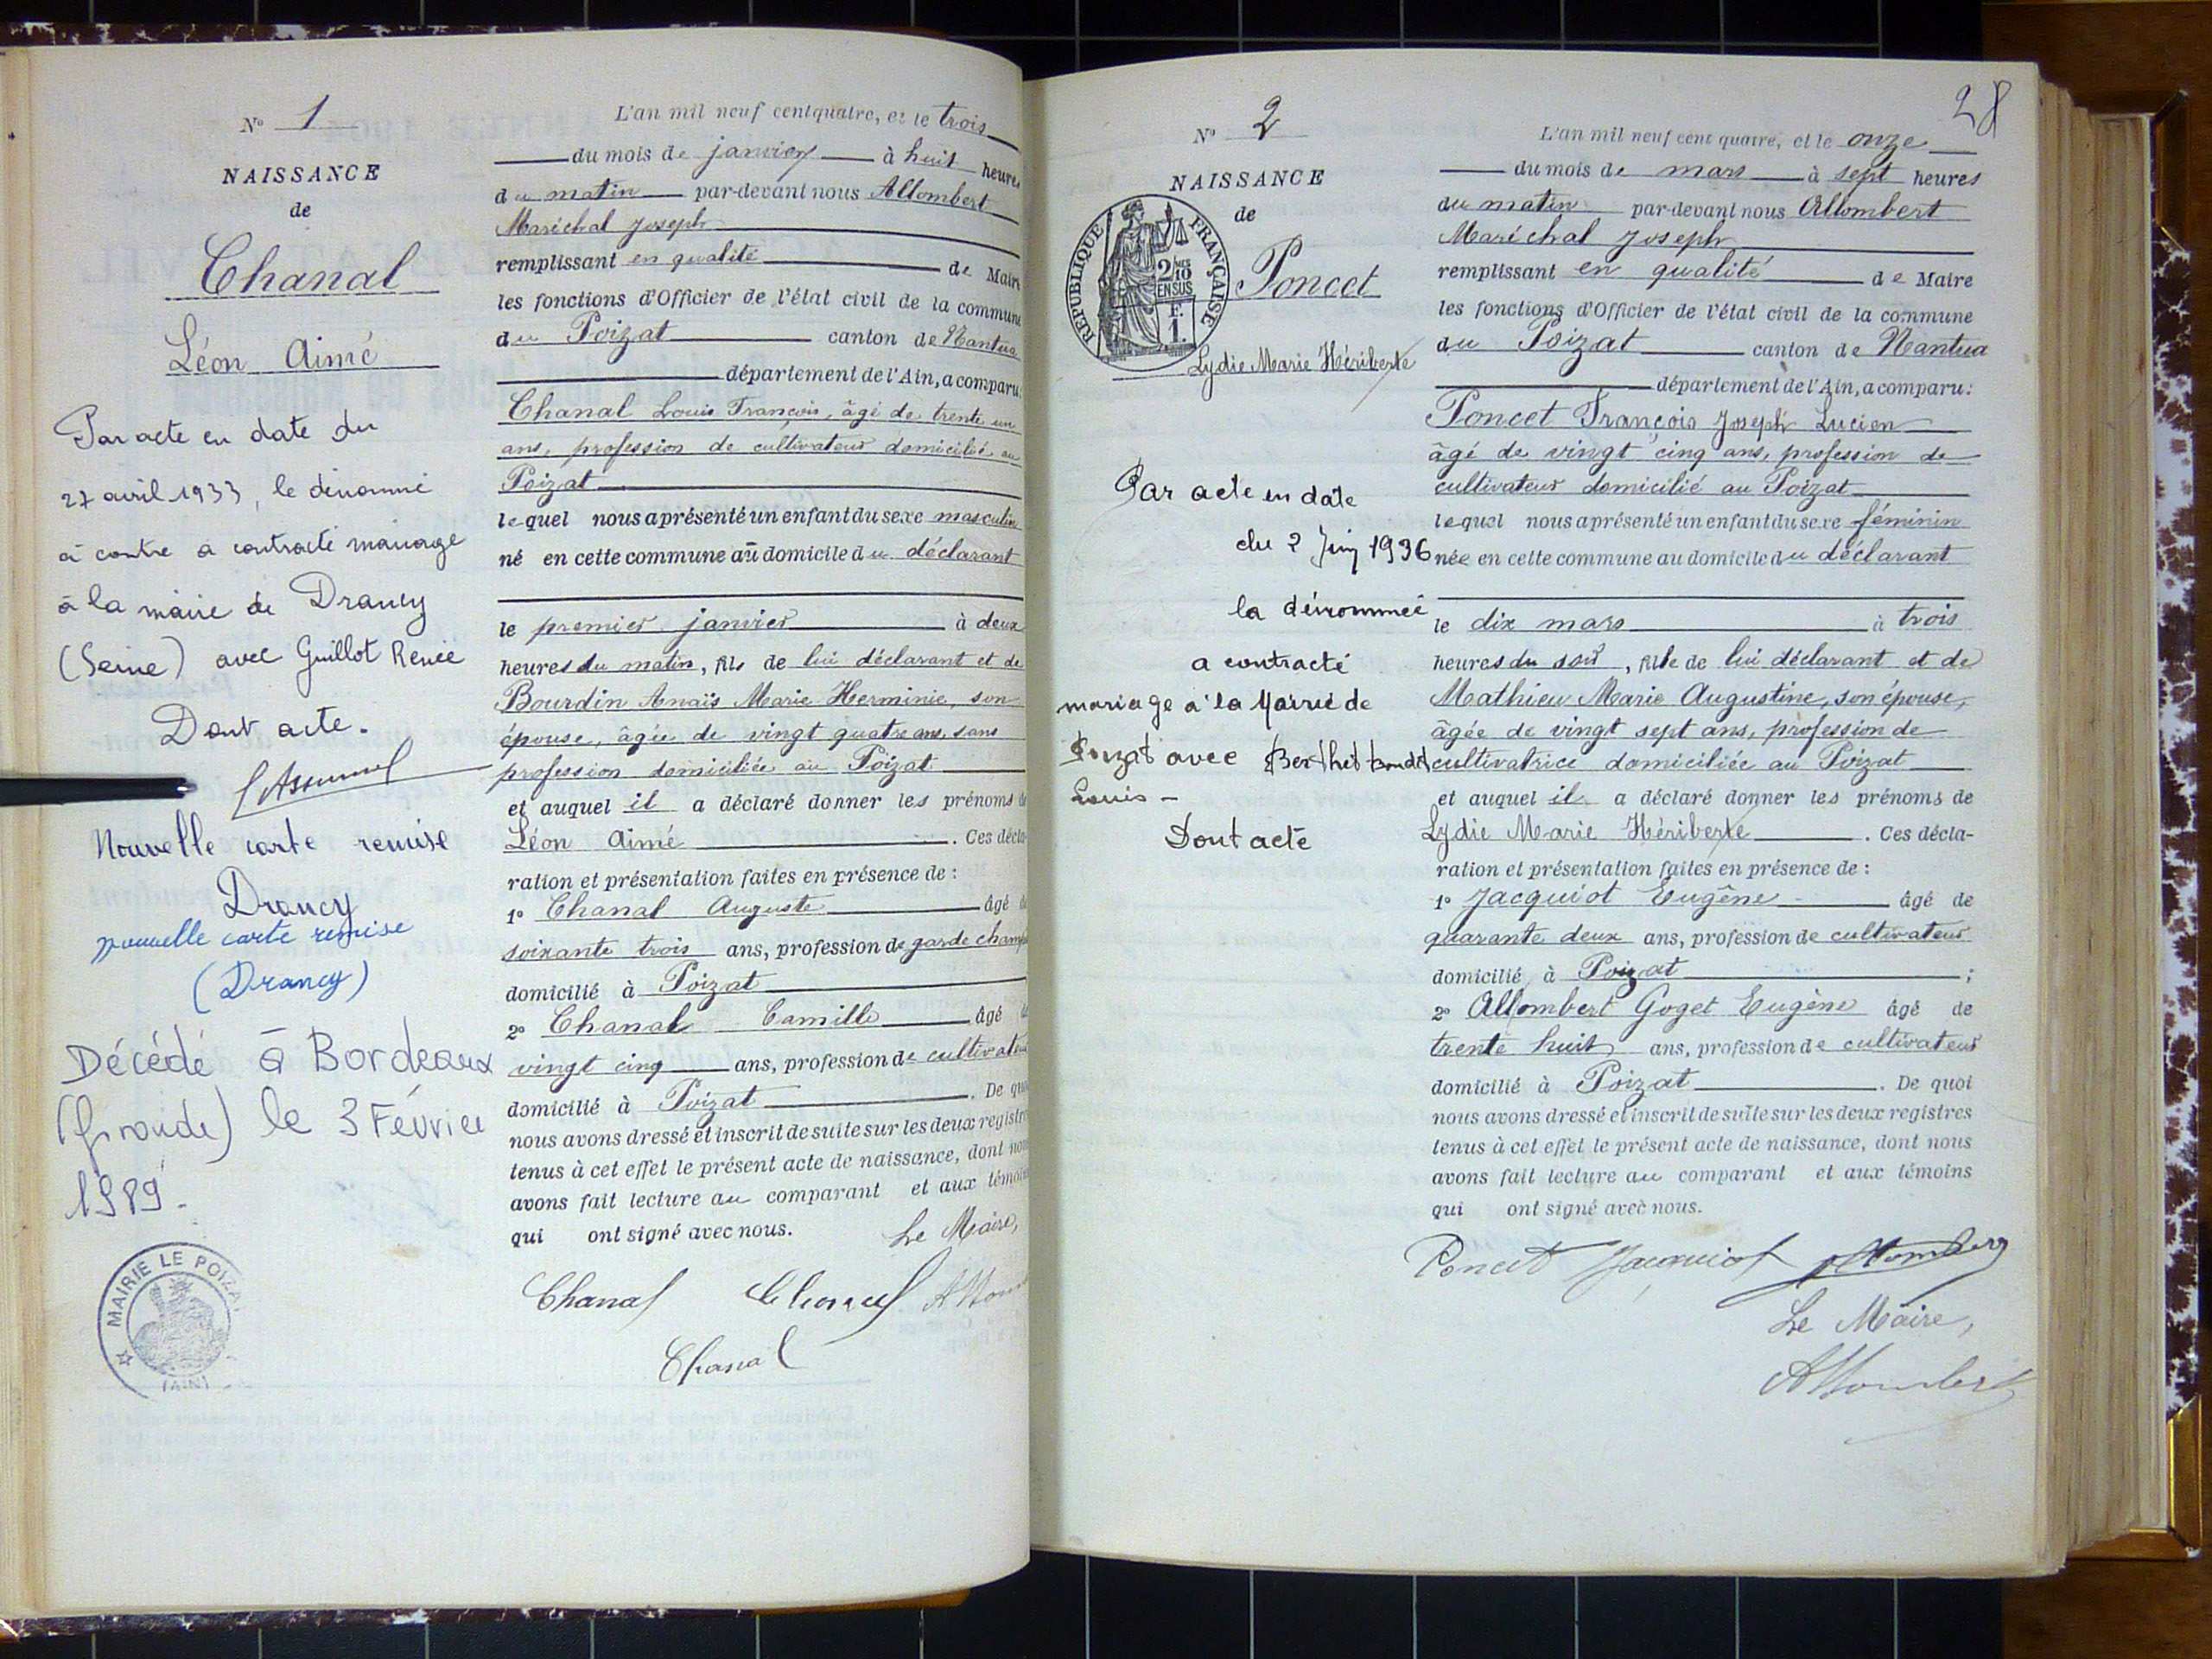 N° 1
NAISSANCE
de
Chanal
Léon Aimé
Par acte en date du
27 avril 1933, le dénommé
ci contre a contracté mariage
à la mairie de Drancy
(Seine) avec Guillot Renée
Dont acte.
Nouvelle carte remise
Drancy
nouvelle carte remise
(Drancy)
Décédé à Bordeaux
(Gironde) le 3 Février
1989.
MAIRIE LE POIZAT
(AIN)
L'an mil neuf cent quatre, et le trois
du mois de janvier à huit heures
du matin par-devant nous Allombert
Maréchal Joseph
remplissant en qualité de Maire
les fonctions d'Officier de l'état civil de la commune
du Poizat canton de Nantua
département de l'Ain, a comparu:
Chanal Louis François, âgé de trente un
ans, profession de cultivateur domicilié au
Poizat
lequel nous a présenté un enfant du sexe masculin
né en cette commune au domicile du déclarant
le premier janvier à deux
heures du matin, fils de lui déclarant et de
Bourdin Anaïs Marie Herminie, son
épouse, âgée de vingt quatre ans, sans
profession domiciliée au Poizat
et auquel il a déclaré donner les prénoms de
Léon Aimé . Ces décla-
ration et présentation faites en présence de :
1° Chanal Auguste âgé de
soixante trois ans, profession de garde champ
domicilié à Poizat
2° Chanal Camille âgé de
vingt cinq ans, profession de cultivateur
domicilié à Poizat . De quoi
nous avons dressé et inscrit de suite sur les deux registres
tenus à cet effet le présent acte de naissance, dont nous
avons fait lecture au comparant et aux témoins
qui ont signé avec nous.
Le Maire,
Chanal Chanal
Chanal
28
N° 2
NAISSANCE
de
REPUBLIQUE FRANÇAISE
2/10 EN SUS
F.
1.
Poncet
Lydie Marie Hériberte
Par acte en date
du 2 Juin 1936
la dénommée
a contracté
mariage à la Mairie de
Poizat avec Berthet
Louis -
Dont acte
L'an mil neuf cent quatre, et le onze
du mois de mars à sept heures
du matin par-devant nous Allombert
Maréchal Joseph
remplissant en qualité de Maire
les fonctions d'Officier de l'état civil de la commune
du Poizat canton de Nantua
département de l'Ain, a comparu:
Poncet François Joseph Lucien
âgé de vingt cinq ans, profession de
cultivateur domicilié au Poizat
lequel nous a présenté un enfant du sexe féminin
née en cette commune au domicile du déclarant
le dix mars à trois
heures du soir, fille de lui déclarant et de
Mathieu Marie Augustine, son épouse,
âgée de vingt sept ans, profession de
cultivatrice domiciliée au Poizat
et auquel il a déclaré donner les prénoms de
Lydie Marie Hériberte . Ces décla-
ration et présentation faites en présence de :
1° Jacquiot Eugène âgé de
quarante deux ans, profession de cultivateur
domicilié à Poizat ;
2° Allombert Goget Eugène âgé de
trente huit ans, profession de cultivateur
domicilié à Poizat . De quoi
nous avons dressé et inscrit de suite sur les deux registres
tenus à cet effet le présent acte de naissance, dont nous
avons fait lecture au comparant et aux témoins
qui ont signé avec nous.
Poncet Jacquiot Allombert
Le Maire,
Allombert